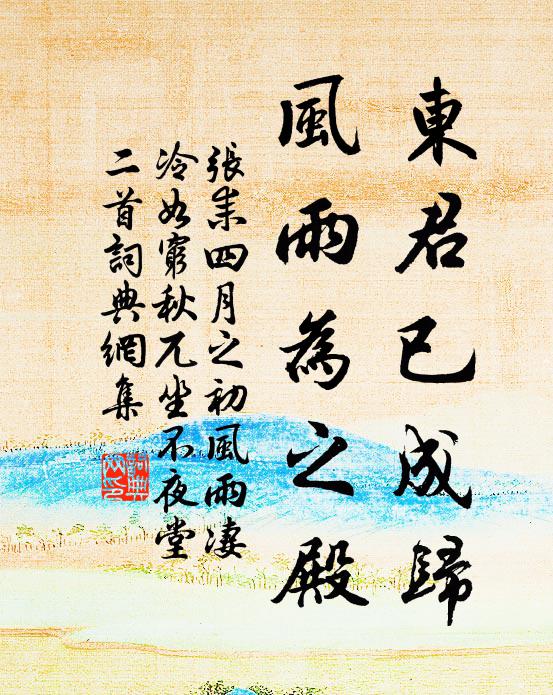 東君已成歸
風雨為之殿
張耒四月之初風雨淒
冷如窮秋兀坐不夜堂
二首詞典網集